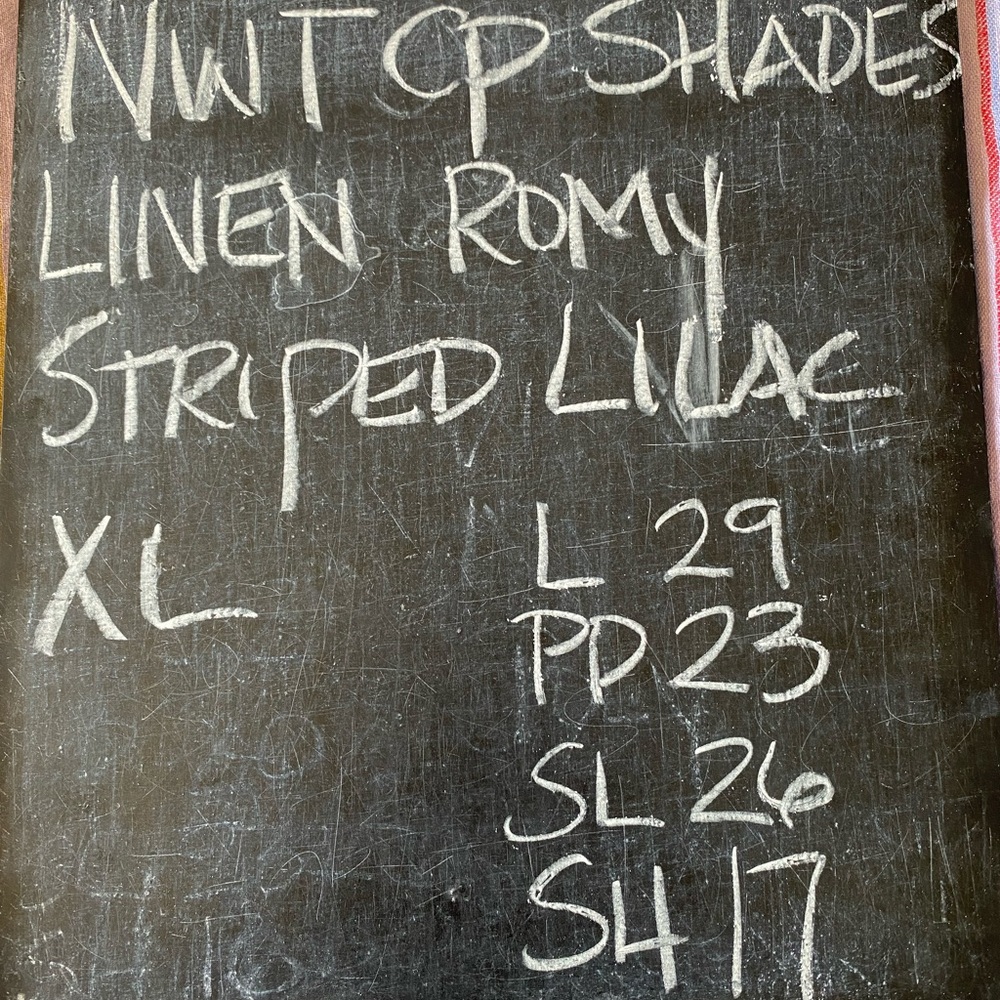 NWT CP SHADES
LINEN ROMY
STRIPED LILAC
XL
L 29
PP 23
SL 26
SH 17